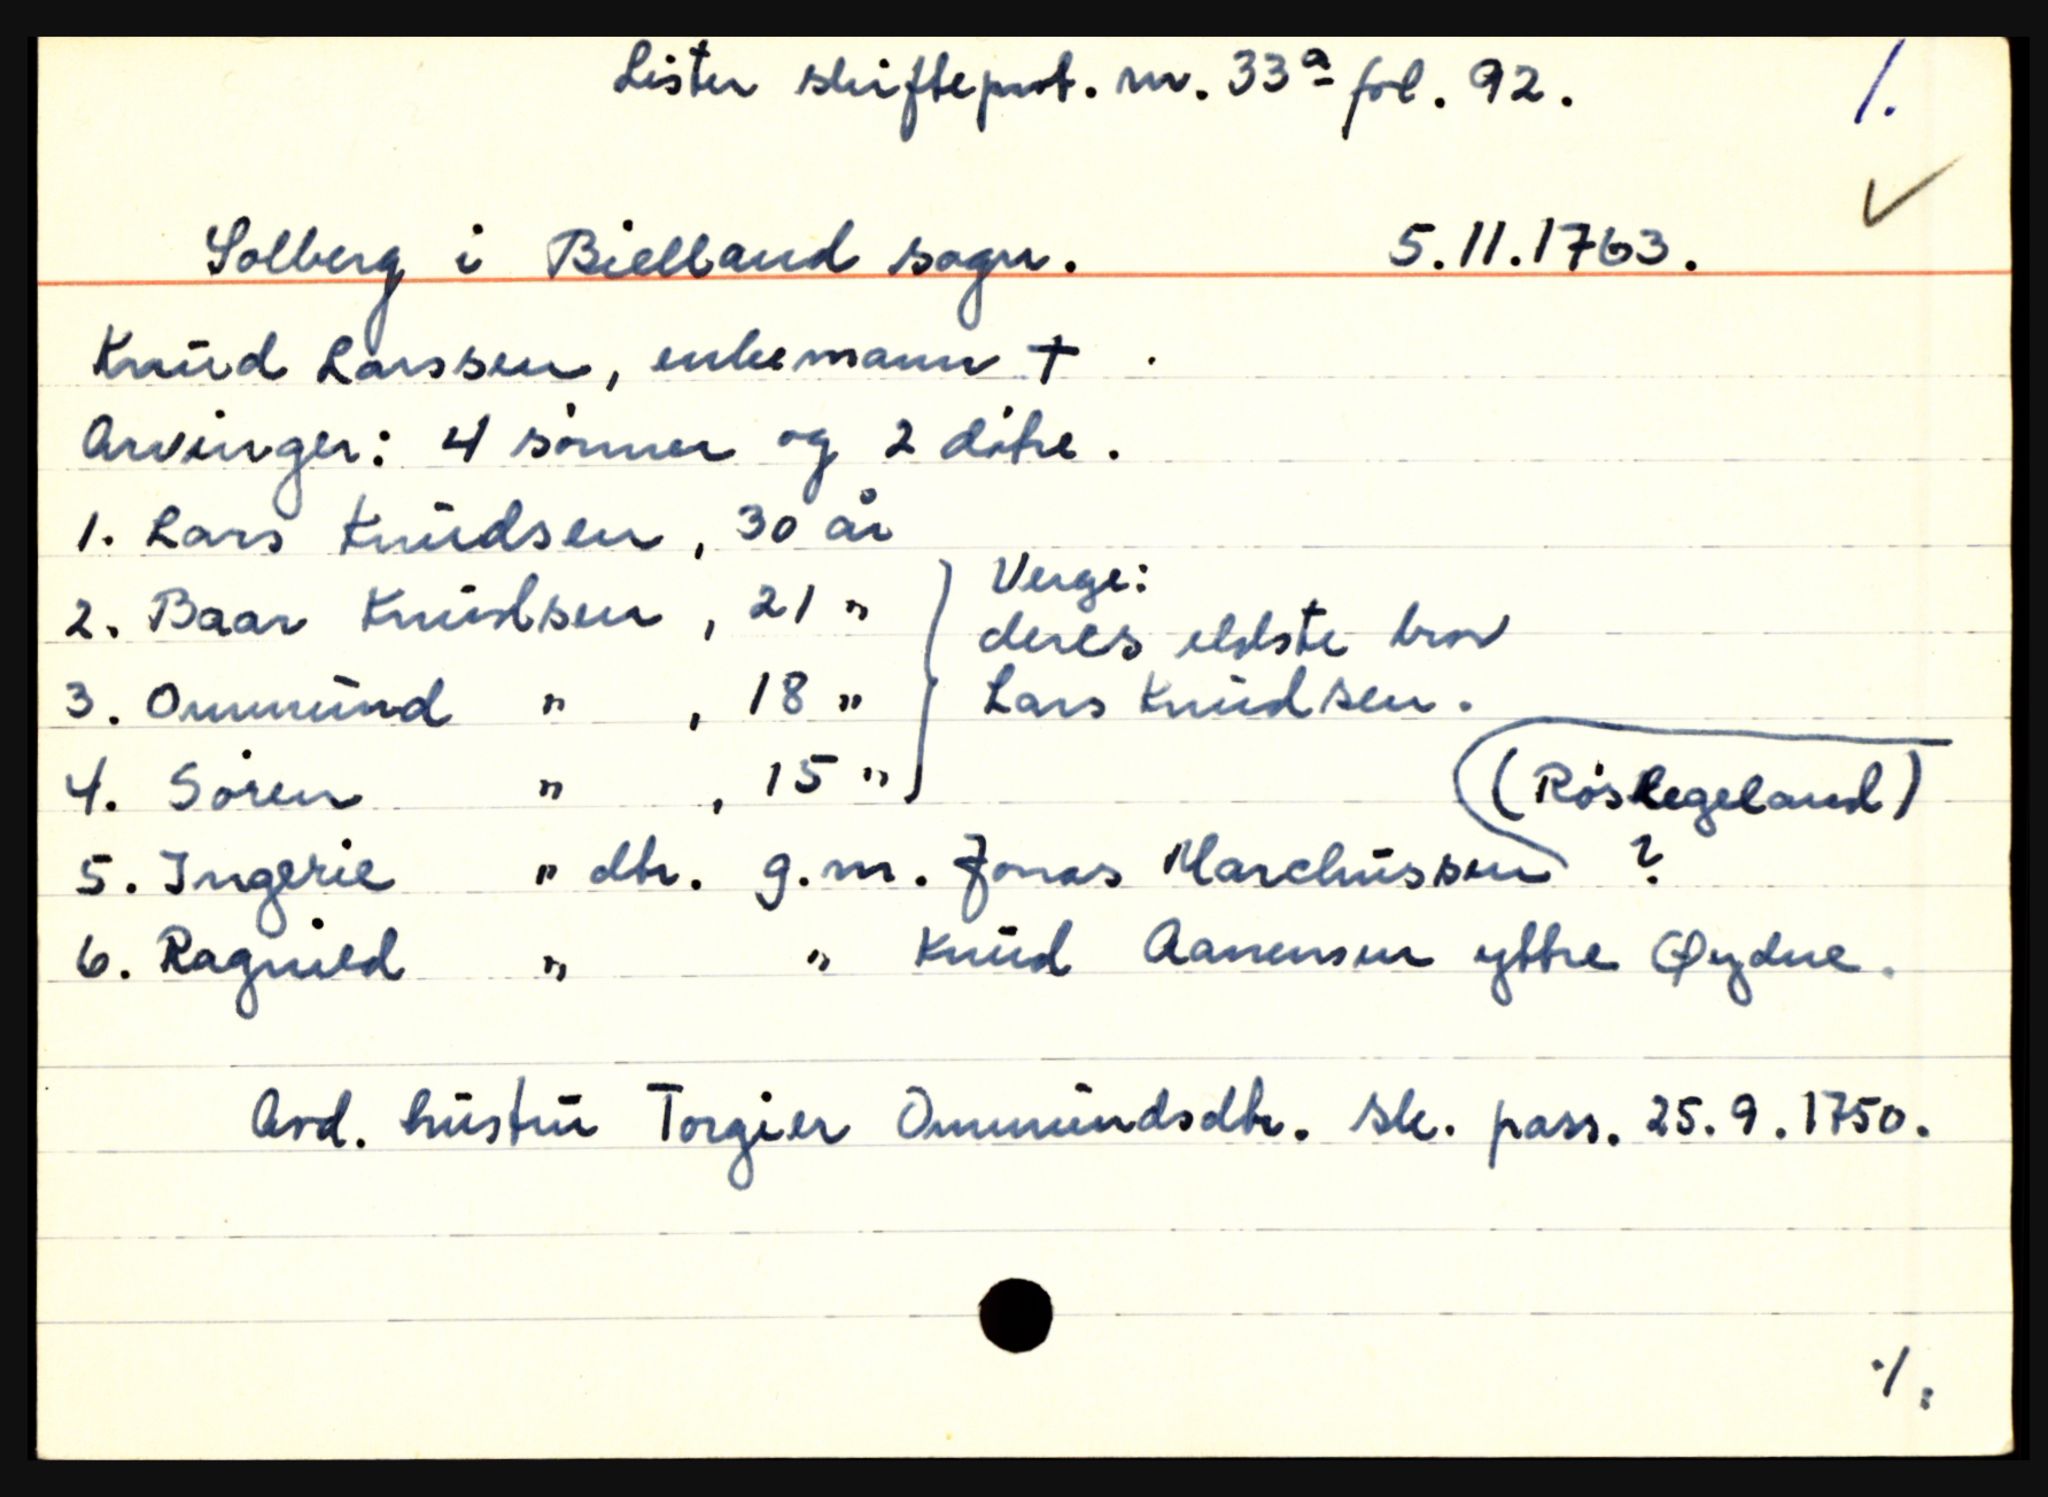 Lister skifteprot. nr. 33a fol. 92. 1.
Solberg i Bielland sogn. 5.11.1763.
Knud Larssen, enkemann †
Arvinger: 4 sønner og 2 døtre.
1. Lars Knudsen, 30 år
2. Baar Knudsen, 21 "
3. Ommund " , 18 "
4. Sören " , 15 "
Verge:
deres eldste bror
Lars Knudsen.
(Röslegeland)
5. Ingerie " dtr. g.m. Jonas Marchussen ?
6. Ragnild " " Knud Aanensen yttre Øydne.
Avd. hustru Torgier Ommundsdtr. sk. pass. 25.9.1750.
./.